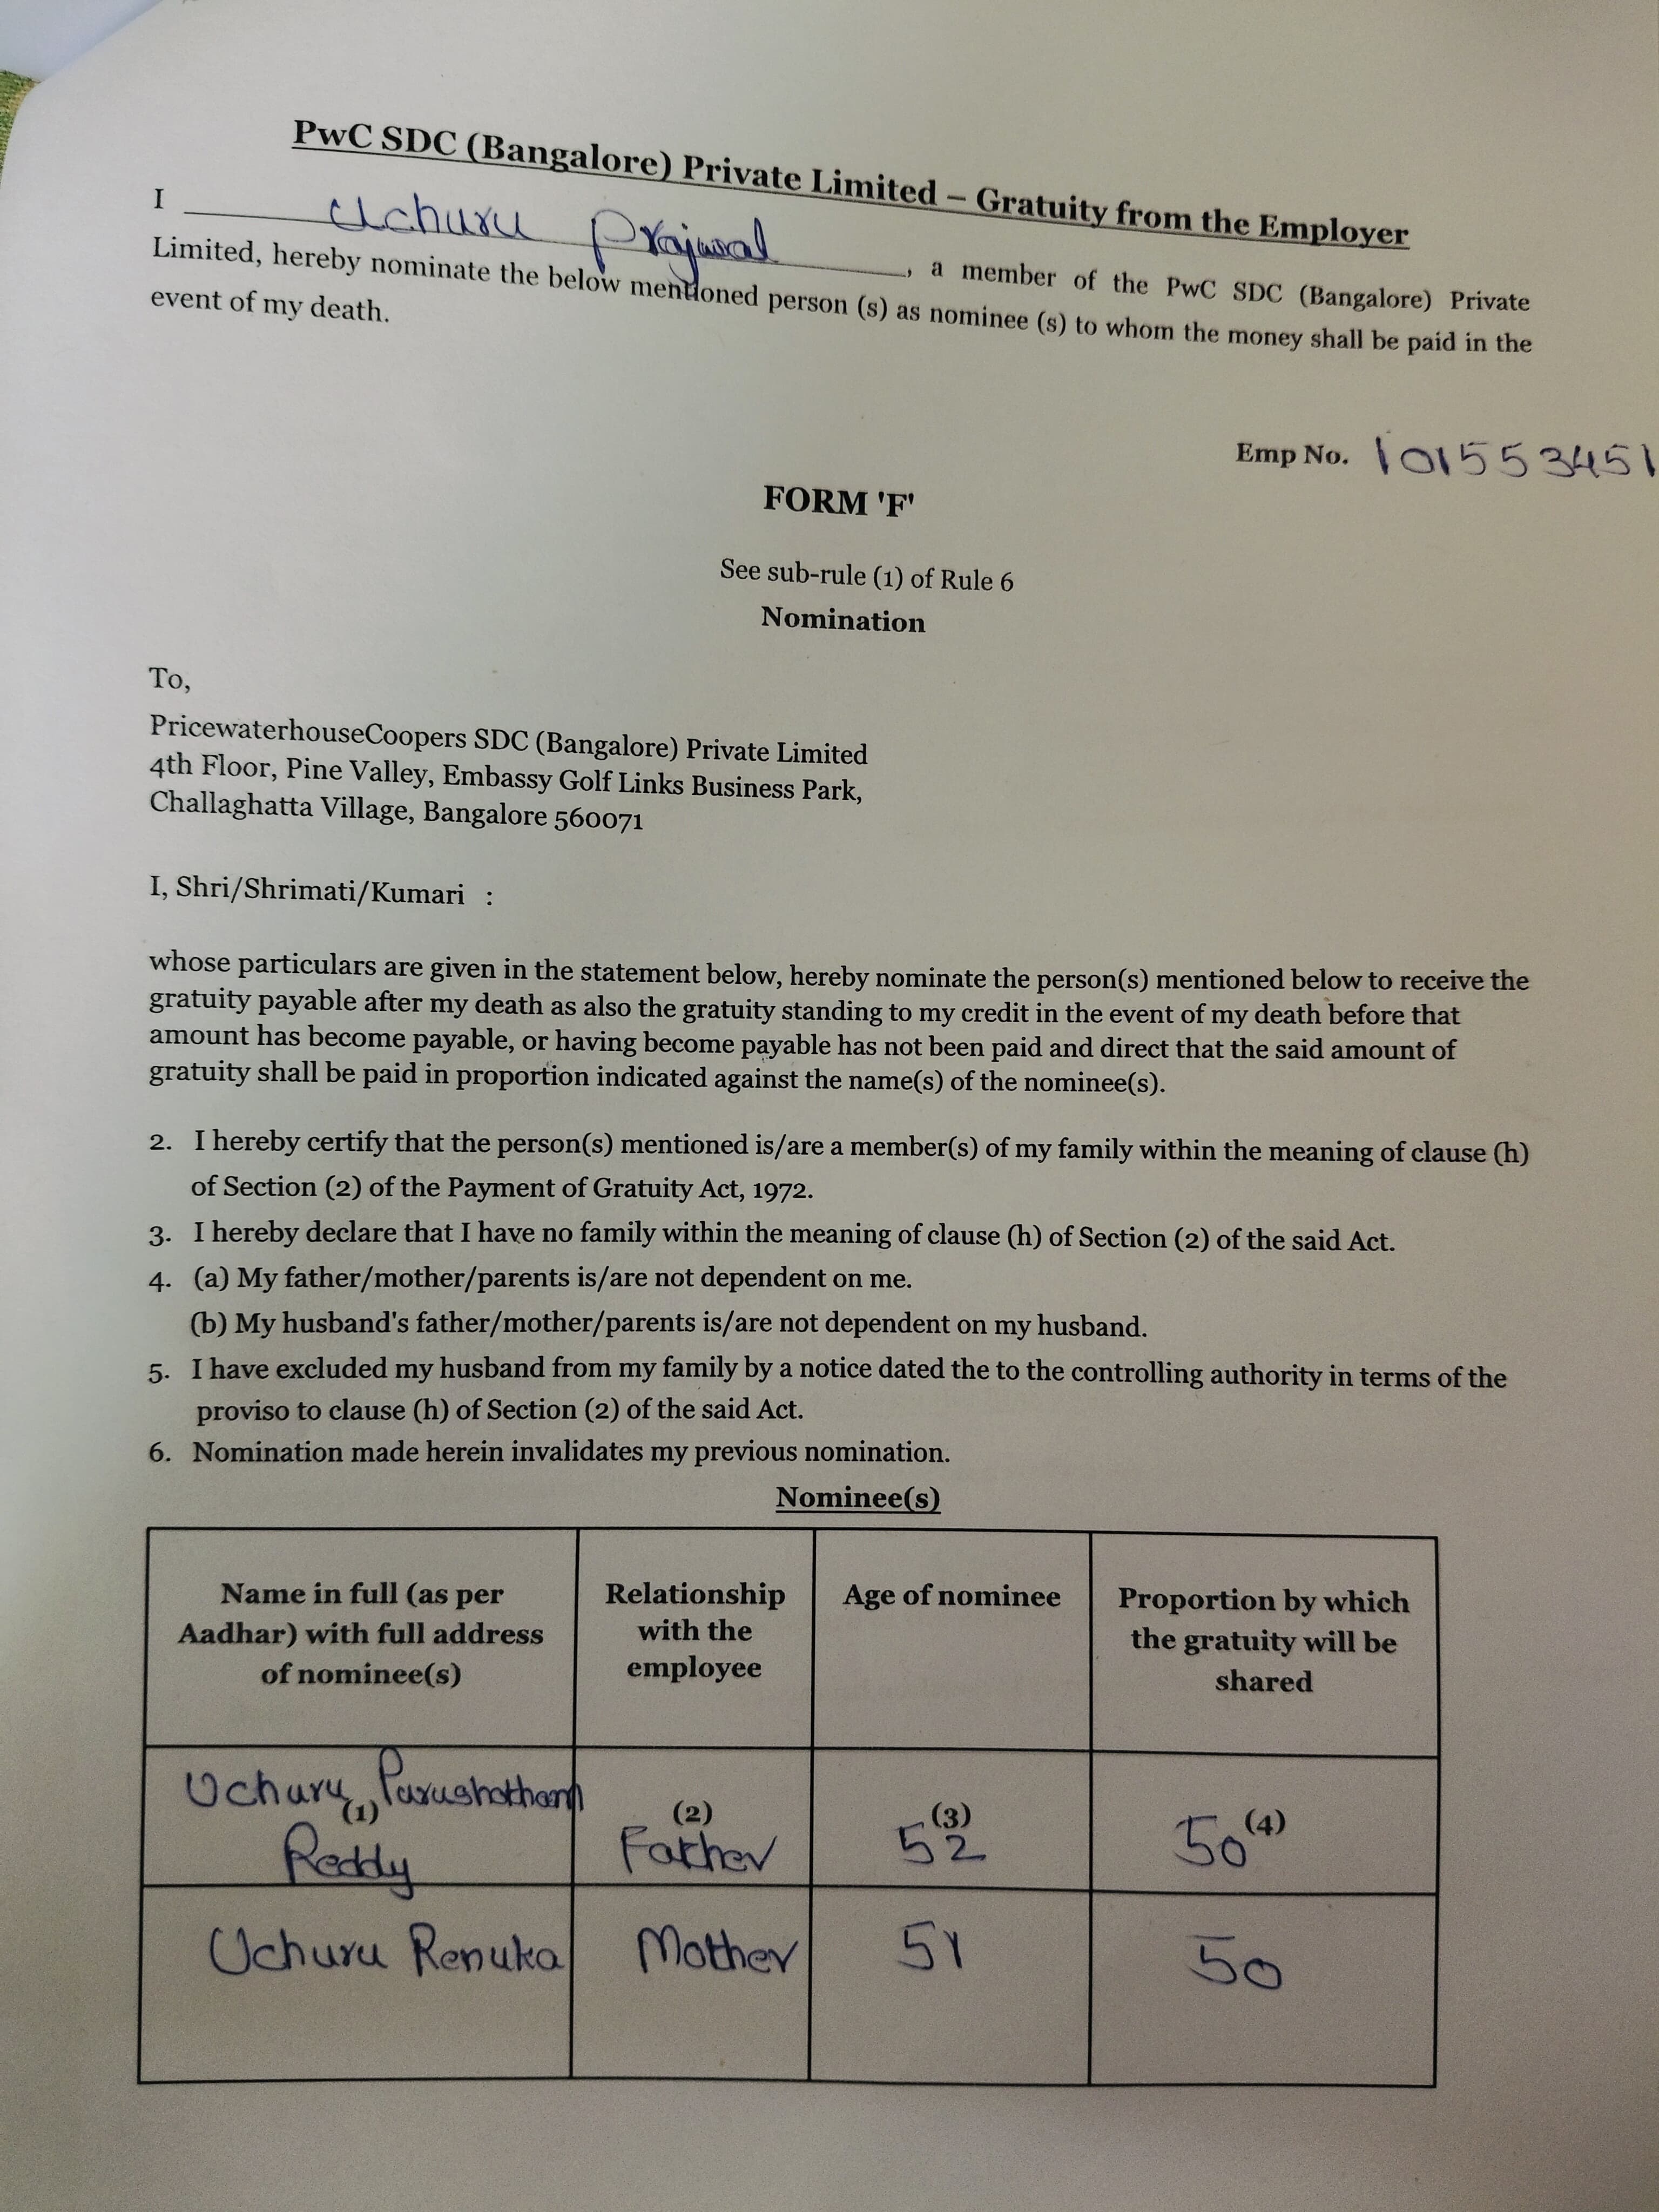 PwC SDC (Bangalore) Private Limited – Gratuity from the Employer
I Uchuru Prajwal, a member of the PwC SDC (Bangalore) Private
Limited, hereby nominate the below mentioned person (s) as nominee (s) to whom the money shall be paid in the
event of my death.
Emp No. 101553451
FORM 'F'
See sub-rule (1) of Rule 6
Nomination
To,
PricewaterhouseCoopers SDC (Bangalore) Private Limited
4th Floor, Pine Valley, Embassy Golf Links Business Park,
Challaghatta Village, Bangalore 560071
I, Shri/Shrimati/Kumari :
whose particulars are given in the statement below, hereby nominate the person(s) mentioned below to receive the
gratuity payable after my death as also the gratuity standing to my credit in the event of my death before that
amount has become payable, or having become payable has not been paid and direct that the said amount of
gratuity shall be paid in proportion indicated against the name(s) of the nominee(s).
2. I hereby certify that the person(s) mentioned is/are a member(s) of my family within the meaning of clause (h)
of Section (2) of the Payment of Gratuity Act, 1972.
3. I hereby declare that I have no family within the meaning of clause (h) of Section (2) of the said Act.
4. (a) My father/mother/parents is/are not dependent on me.
(b) My husband's father/mother/parents is/are not dependent on my husband.
5. I have excluded my husband from my family by a notice dated the to the controlling authority in terms of the
proviso to clause (h) of Section (2) of the said Act.
6. Nomination made herein invalidates my previous nomination.
Nominee(s)
Name in full (as per
Aadhar) with full address
of nominee(s)
Relationship
with the
employee
Age of nominee
Proportion by which
the gratuity will be
shared
Uchuru Purushotham
(1)
Reddy
(2)
Father
(3)
52
(4)
50
Uchuru Renuka
Mother
51
50